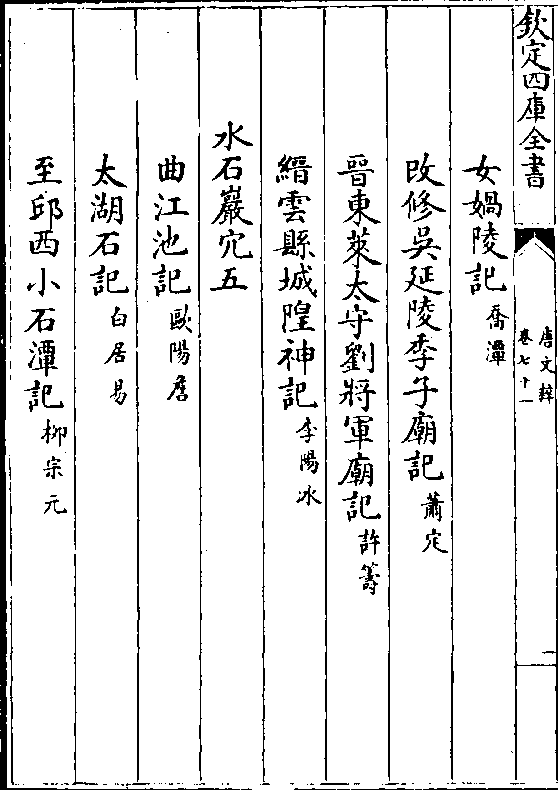 欽定四庫全書
唐文粹
卷七十一
一
女媧陵記 喬潭
改修吳延陵季子廟記 蕭定
晉東萊太守劉將軍廟記 許籌
縉雲縣城隍神記 李陽冰
水石巖穴五
曲江池記 歐陽詹
太湖石記 白居易
至邱西小石潭記 柳宗元